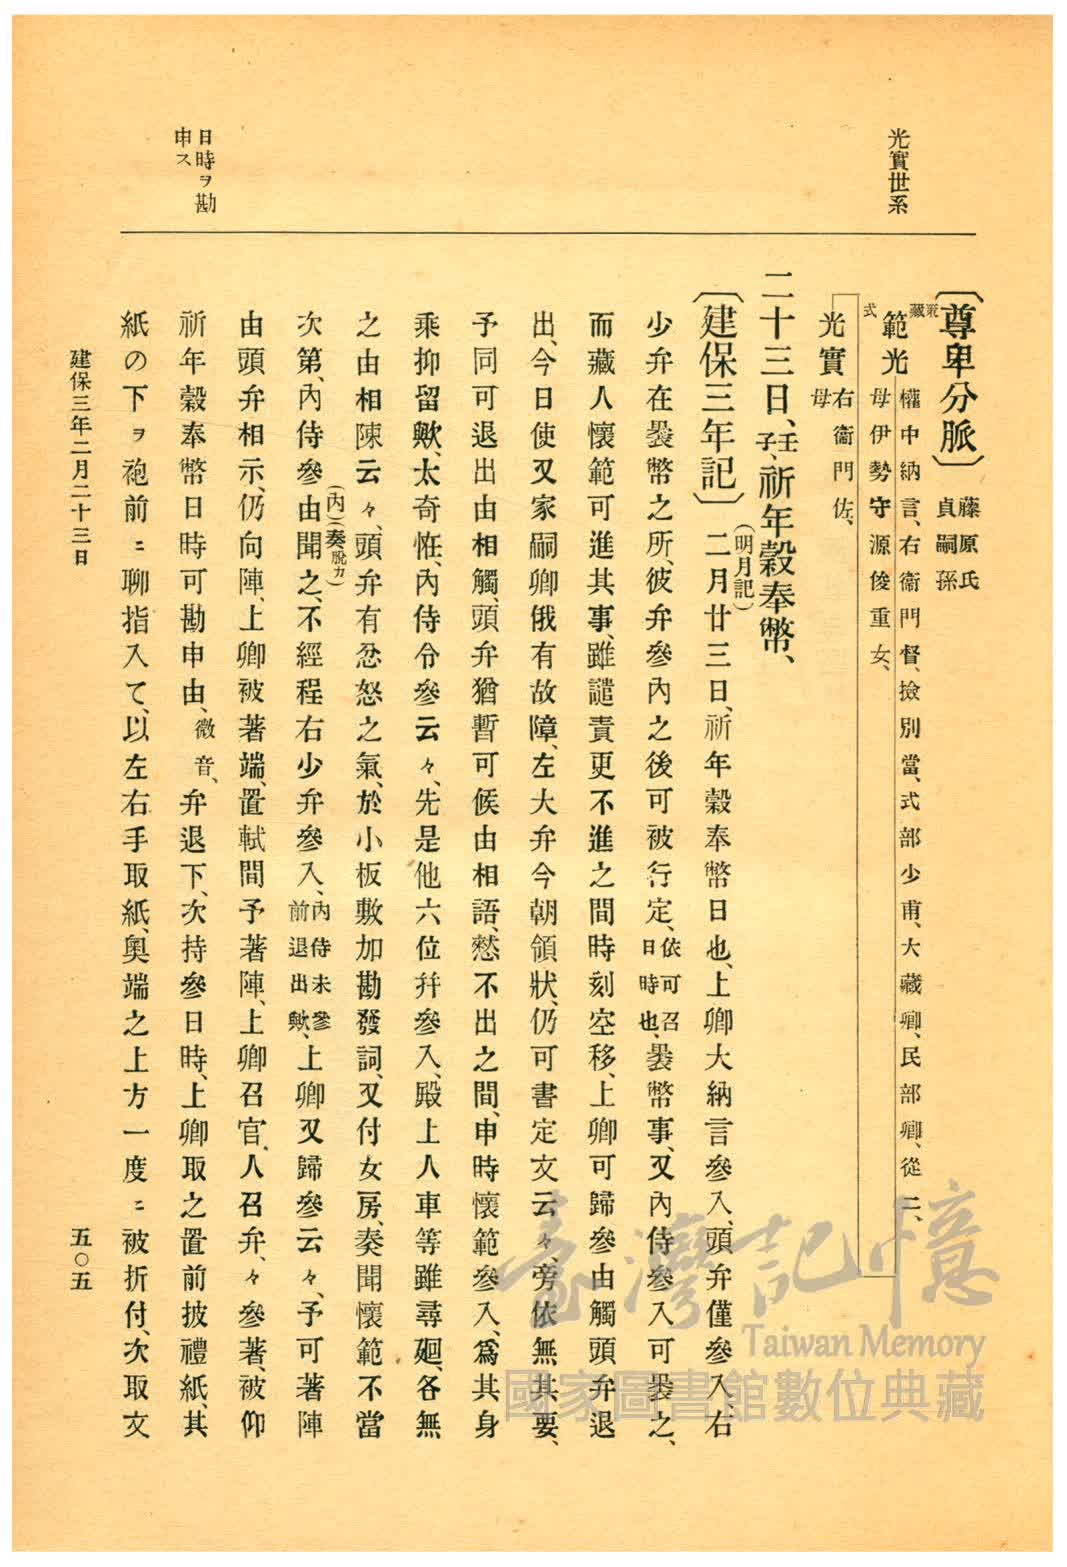 光實世系
日時ヲ勘
申ス
〔尊卑分脈〕藤原氏
貞嗣孫
範光
權中納言、右衞門督、撿別當、式部少甫、大藏卿、民部卿、從二、
母伊勢守源俊重女、
式
光實
右衞門佐、
母
二十三日、壬子、祈年穀奉幣、
〔建保三年記〕二月廿三日、祈年穀奉幣日也、上卿大納言參入、頭弁僅參入、右
(明月記)
少弁在裹幣之所、彼弁參內之後可被行定、依可召日時也、裹幣事、又內侍參入可裹之、
而藏人懷範可進其事、雖譴責更不進之間時刻空移、上卿可歸參由觸頭弁退
出、今日使又家嗣卿俄有故障、左大弁今朝領狀、仍可書定文云々、旁依無其要、
予同可退出由相觸、頭弁猶暫可候由相語、憖不出之間、申時懷範參入、爲其身
乘抑留歟、太奇恠、內侍令參云々、先是他六位幷參入、殿上人車等雖尋廻、各無
之由相陳云々、頭弁有忿怒之氣、於小板敷加勘發詞、又付女房、奏聞懷範不當
次第、內侍參由聞之、不經程右少弁參入、內侍未參前退出歟、上卿又歸參云々、予可著陣
(內)(奏脫カ)
由頭弁相示、仍向陣、上卿被著端、置軾間予著陣、上卿召官人召弁、々參著、被仰
祈年穀奉幣日時可勘申由、微音、弁退下、次持參日時、上卿取之置前披禮紙、其
紙の下ヲ袍前ニ聊指入て、以左右手取紙、奧端之上方一度ニ被折付、次取文
建保三年二月二十三日
五〇五
臺灣記憶
Taiwan Memory
國家圖書館數位典藏